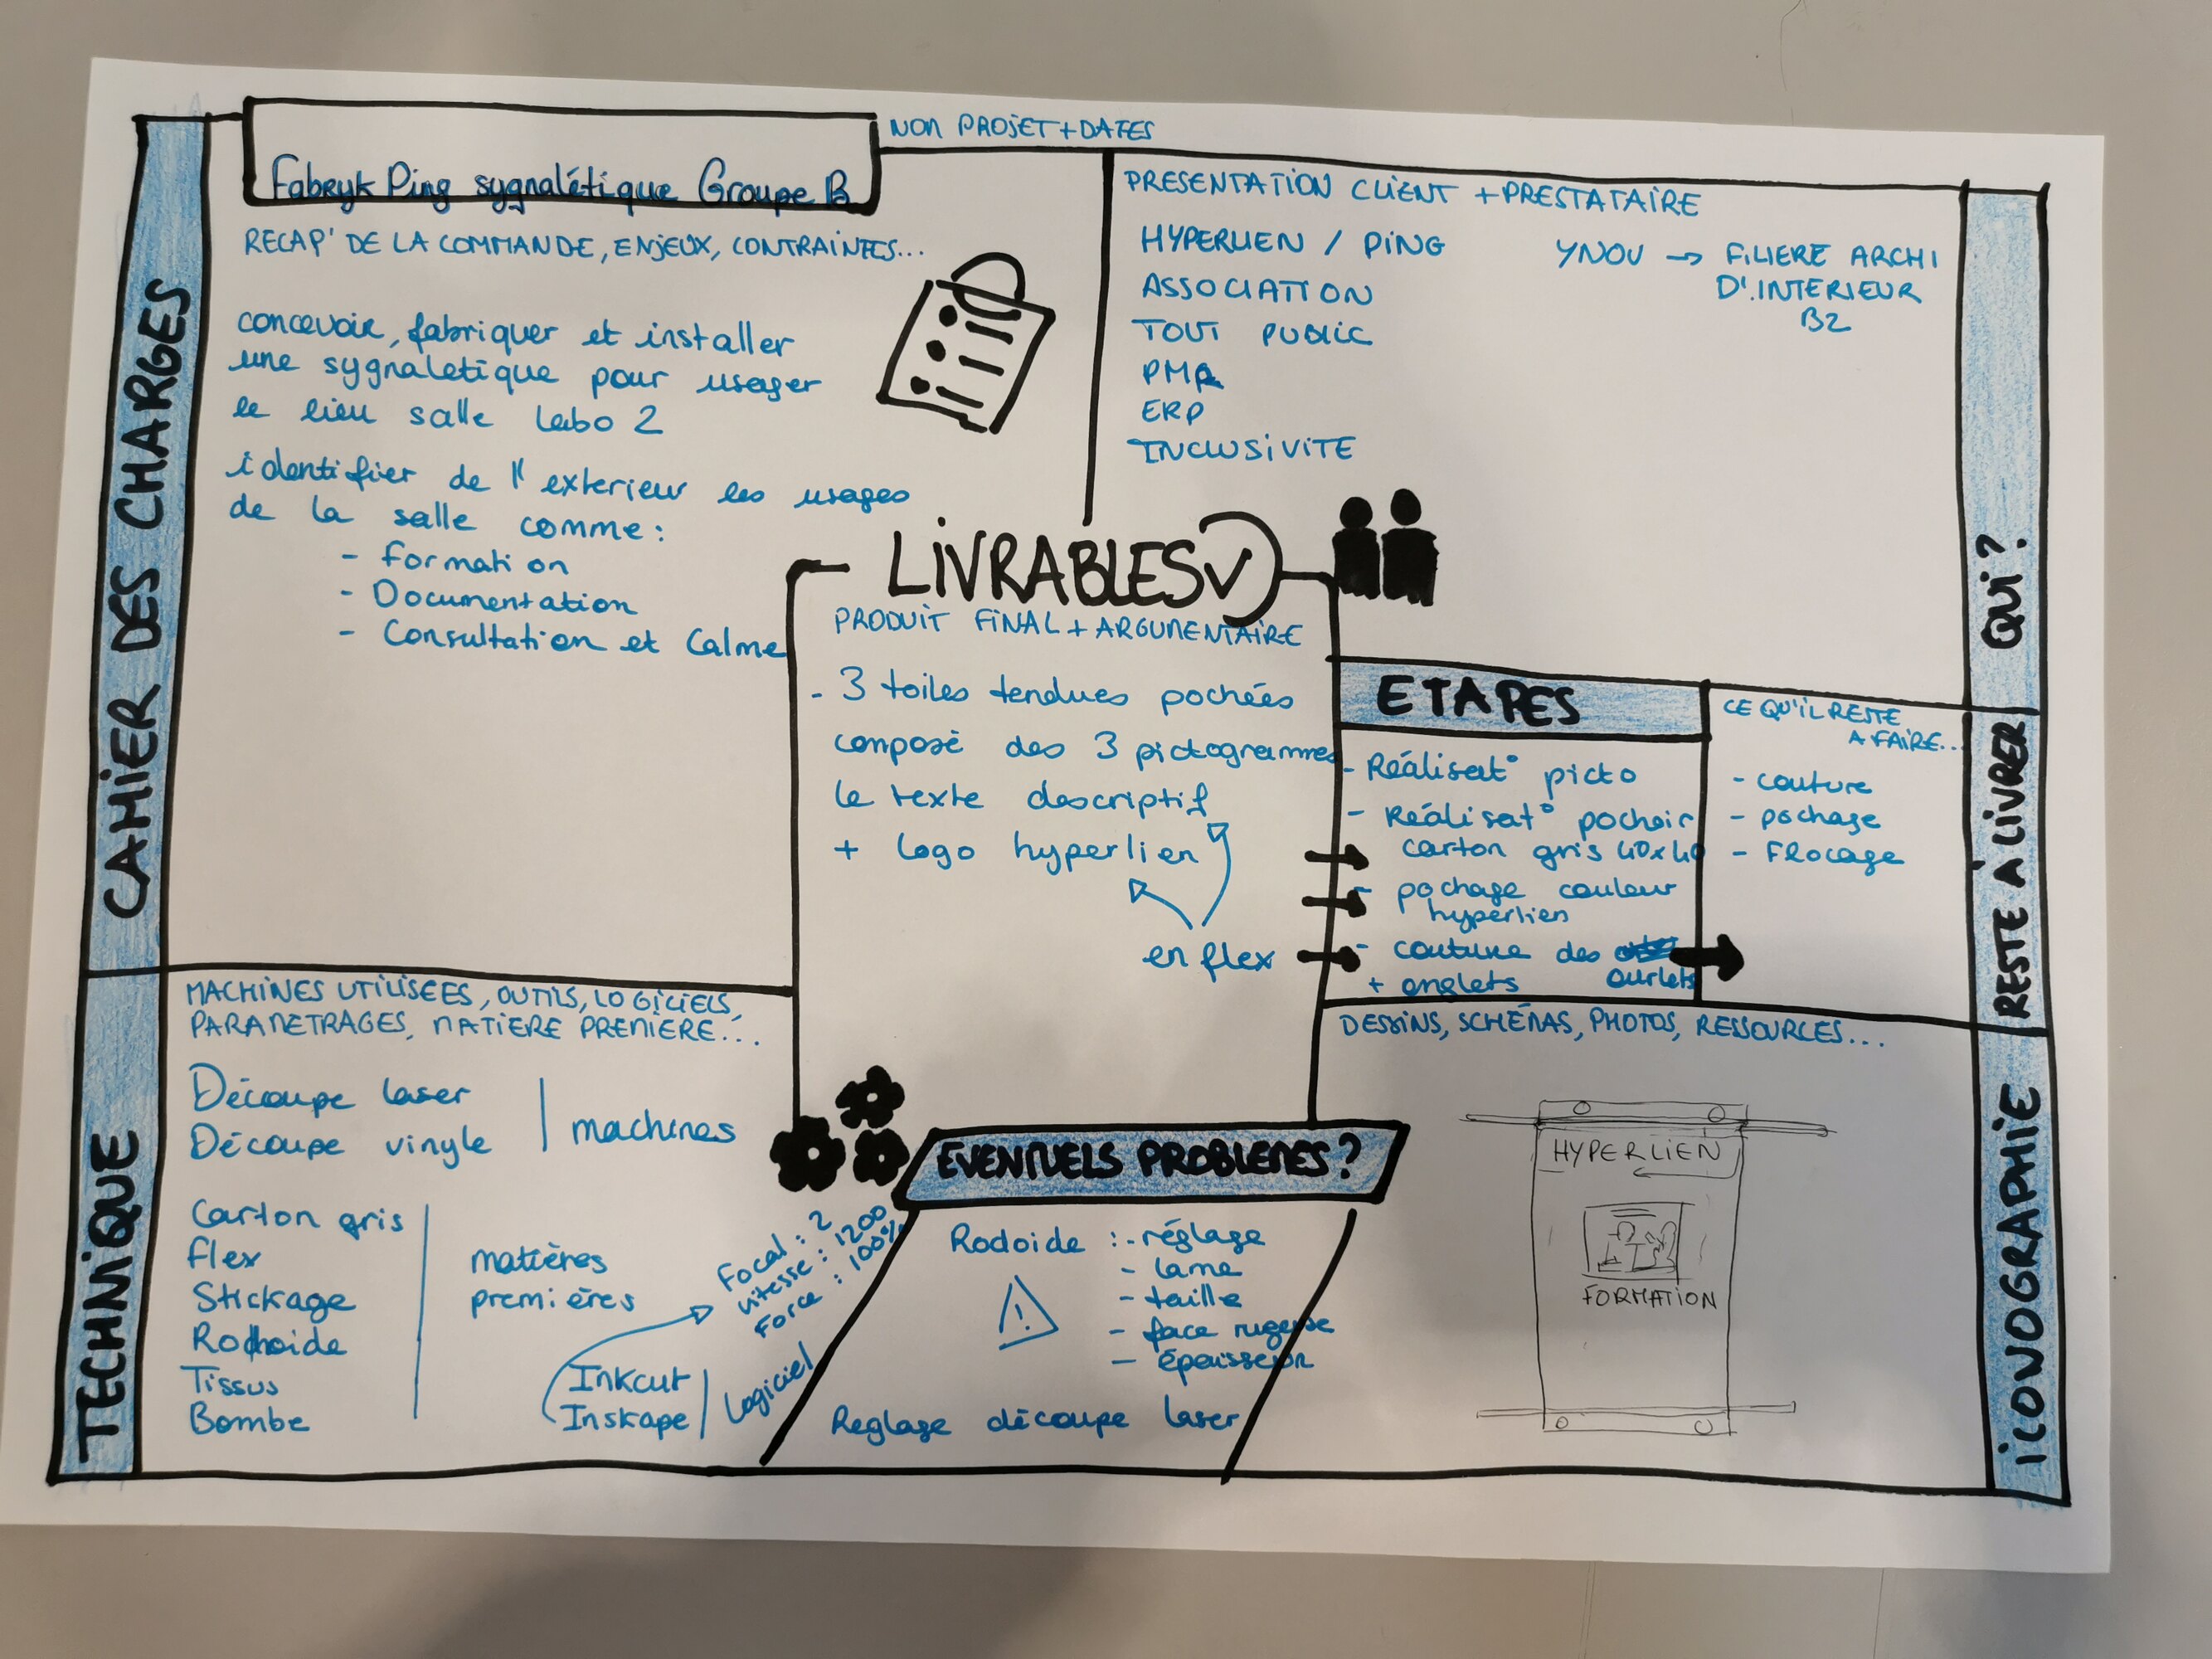 NOM PROJET + DATES
Fabryk Ping sygnalétique Groupe B
CAHIER DES CHARGES
RECAP' DE LA COMMANDE, ENJEUX, CONTRAINTES...
concevoir, fabriquer et installer
une sygnaletique pour usager
le lieu salle Labo 2
identifier de l'exterieur les usages
de la salle comme :
- Formation
- Documentation
- Consultation et Calme
PRESENTATION CLIENT + PRESTATAIRE
HYPERLIEN / PING
ASSOCIATION
TOUT PUBLIC
PMR
ERP
INCLUSIVITE
YNOV → FILIERE ARCHI
D'.INTERIEUR
B2
QUI ?
LIVRABLES
PRODUIT FINAL + ARGUMENTAIRE
- 3 toiles tendues pochées
composé des 3 pictogrammes
le texte descriptif
+ logo hyperlien
en flex
ETAPES
- Réalisat° picto
- Réalisat° pochoir
carton gris 40x40
- pochage couleur
hyperlien
- couture des
ourlets
+ onglets
CE QU'IL RESTE
A FAIRE...
- couture
- pochage
- Flocage
RESTE À LIVRER
TECHNIQUE
MACHINES UTILISEES, OUTILS, LOGICIELS,
PARAMETRAGES, MATIERE PREMIERE...
Découpe laser
Découpe vinyle
machines
Carton gris
flex
Stickage
Rodhoide
Tissus
Bombe
matières
premières
Focal : 2
vitesse : 1200
Force : 100%
Inkcut
Inskape
Logiciel
EVENTUELS PROBLEMES ?
Rodoide : - réglage
- lame
- taille
- face rugeuse
- épaisseur
!
Reglage découpe laser
DESSINS, SCHÉMAS, PHOTOS, RESSOURCES...
HYPERLIEN
FORMATION
ICONOGRAPHIE